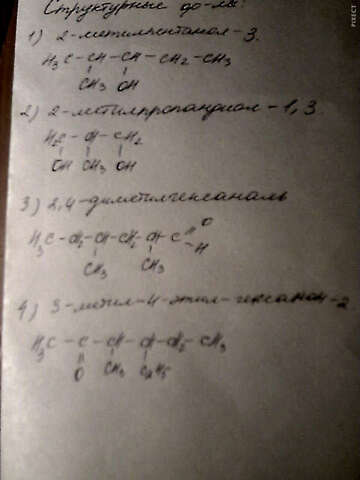 Структурные ф-лы:
1) 2-метилпентанол-3.
H₃C - CH - CH - CH₂ - CH₃
CH₃ OH
2) 2-метилпропандиол-1,3.
H₂C - CH - CH₂
OH CH₃ OH
3) 2,4-диметилгексаналь
H₃C - CH₂ - CH - CH₂ - CH - C = O
- H
CH₃ CH₃
4) 3-метил-4-этил-гексанон-2
H₃C - C - CH - CH - CH₂ - CH₃
O CH₃ C₂H₅
PIXECT